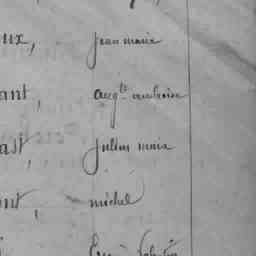 ux, jean marie
ant, aug.te ambroise
ast, jullien marie
ont, michel